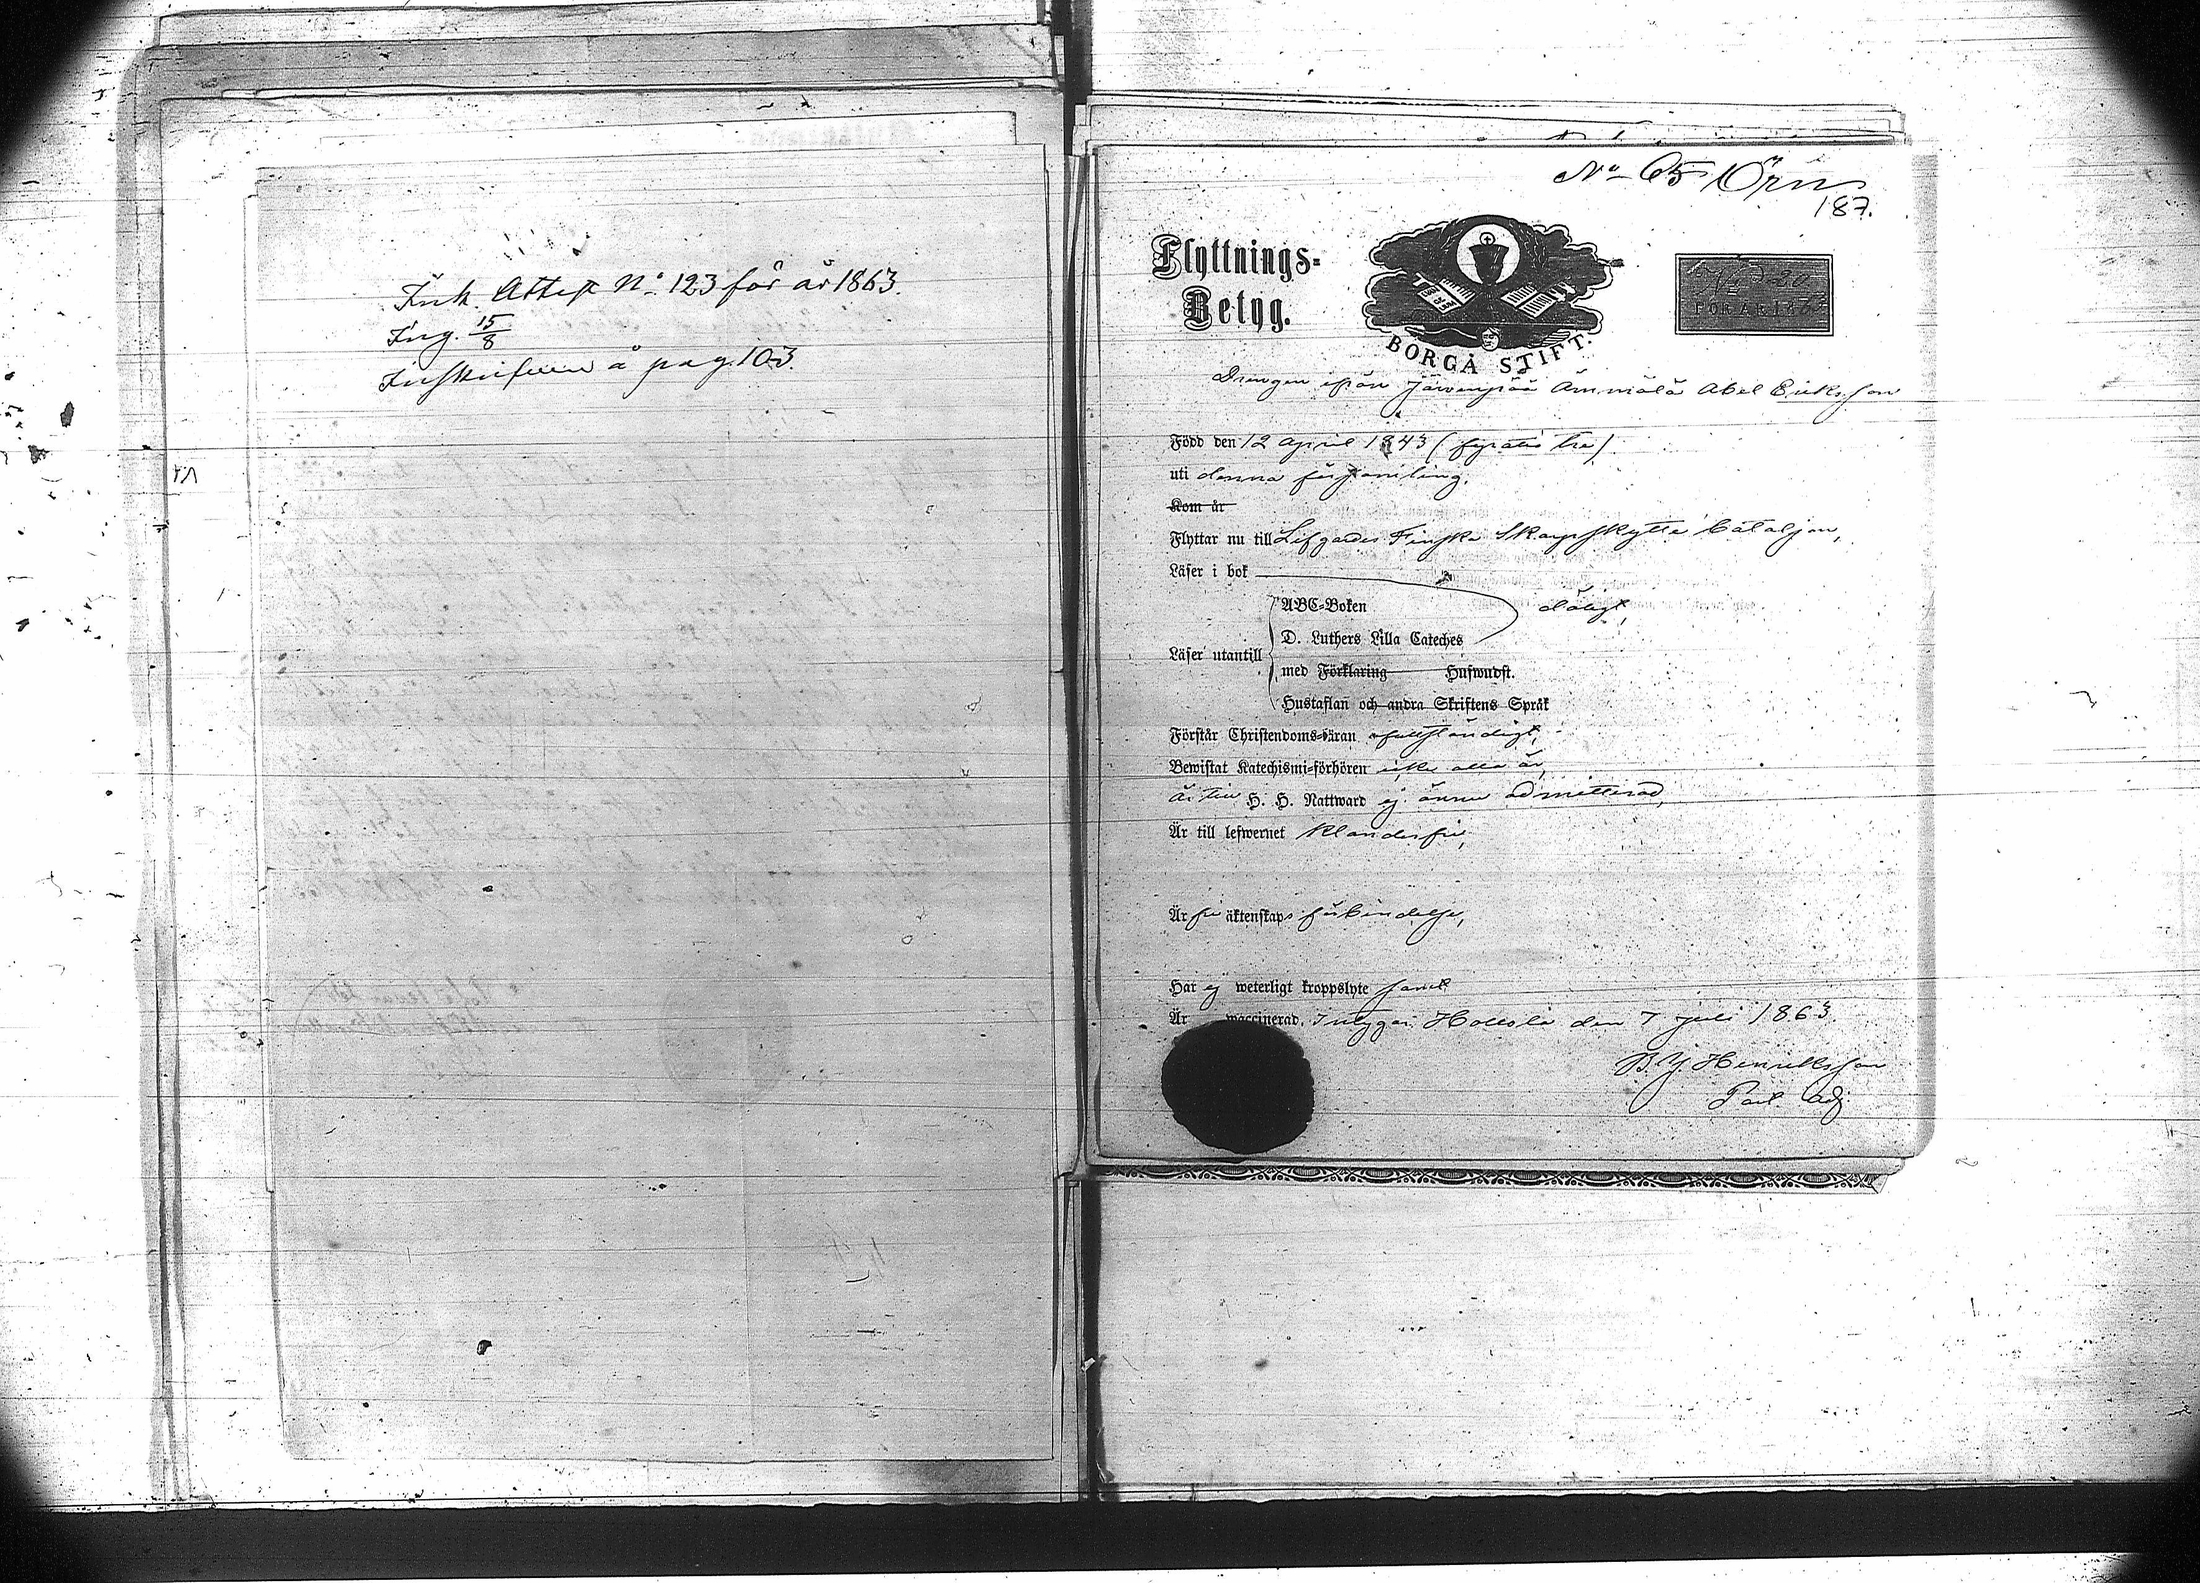 Ink. Attest No. 123 för år 1863.
Ing. 15/8
Inskrifven å pag. 103.
No 65 Örn
187.
Flyttnings-
Betyg.
BORGÅ STIFT.
No 20
FÖR ÅR 1863
Drengen ifrån Järvenpää Ämmälä Abel Eriksson
Född den 12 April 1843 (fyratio tre)
uti denna församling.
Kom år
Flyttar nu till Lifgardes Finska Skarpskytte bataljon,
Läser i bok
ABC-Boken
dåligt,
D. Luthers Lilla Cateches
Läser utantill
med Förklaring Hufwudst.
Hustaflan och andra Skriftens Språk
Förstår Christendoms-läran ofullständigt,
Bewistat Katechismi-förhören icke alla år,
Är till H. H. Nattward ej ännu admitterad,
Är till lefwernet klanderfri,
Är fri äktenskaps förbindelse,
Har ej weterligt kroppslyte samt
Är waccinerad. Intygar. Hollola den 7 Juli 1863.
Henriksson
Past. Adj.